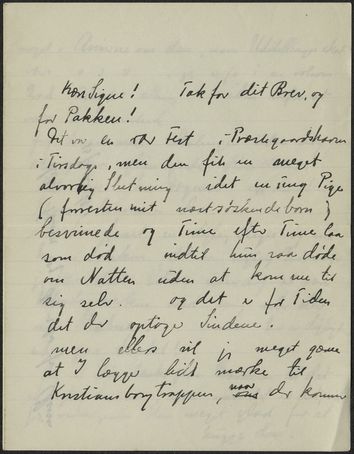 Kære Signe! Tak for dit Brev, og
for Pakken!
Det var en stor Fest i Præstegaardshaven
i Tirsdags, men den fik en meget
alvorlig Slutning idet en ung Pige
(forresten mit næstsøskendebarn)
besvimede og Time efter Time laa
som død indtil hun saa døde
om Natten uden at komme til
sig selv. og det er for Tiden
det der optager Sindene.
men ellers vil jeg meget gerne
at I lægge lidt mærke til
Kristiansborgtrappen, naar der kommer